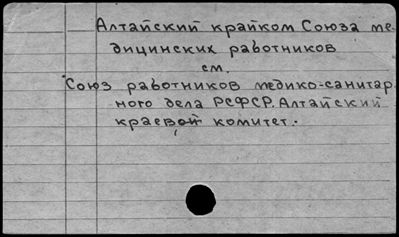 Алтайский крайком Союза ме-
дицинских работников
см.
Союз работников медико-санитар-
ного дела РСФСР. Алтайский
краевой комитет.